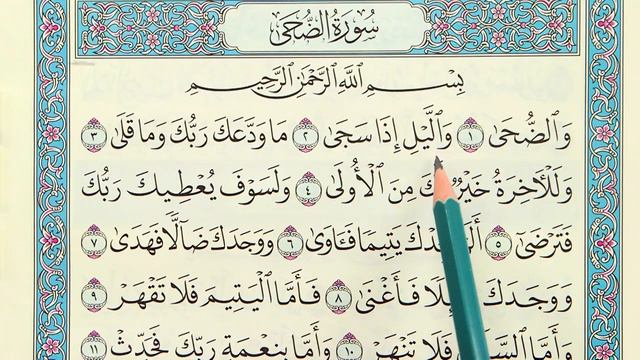 سُورَةُ الضُّحَىٰ
بِسْمِ ٱللَّهِ ٱلرَّحْمَٰنِ ٱلرَّحِيمِ
وَٱلضُّحَىٰ ١ وَٱلَّيْلِ إِذَا سَجَىٰ ٢ مَا وَدَّعَكَ رَبُّكَ وَمَا قَلَىٰ ٣
وَلَلْـَٔاخِرَةُ خَيْرٌ مِنَ ٱلْأُولَىٰ ٤ وَلَسَوْفَ يُعْطِيكَ رَبُّكَ
فَتَرْضَىٰٓ ٥ يَتِيمًا فَـَٔاوَىٰ ٦ وَوَجَدَكَ ضَآلًّا فَهَدَىٰ ٧
وَوَجَدَكَ فَأَغْنَىٰ ٨ فَأَمَّا ٱلْيَتِيمَ فَلَا تَقْهَرْ ٩
وَأَمَّا فَلَا تَنْهَرْ ١٠ وَأَمَّا بِنِعْمَةِ رَبِّكَ فَحَدِّثْ ١١